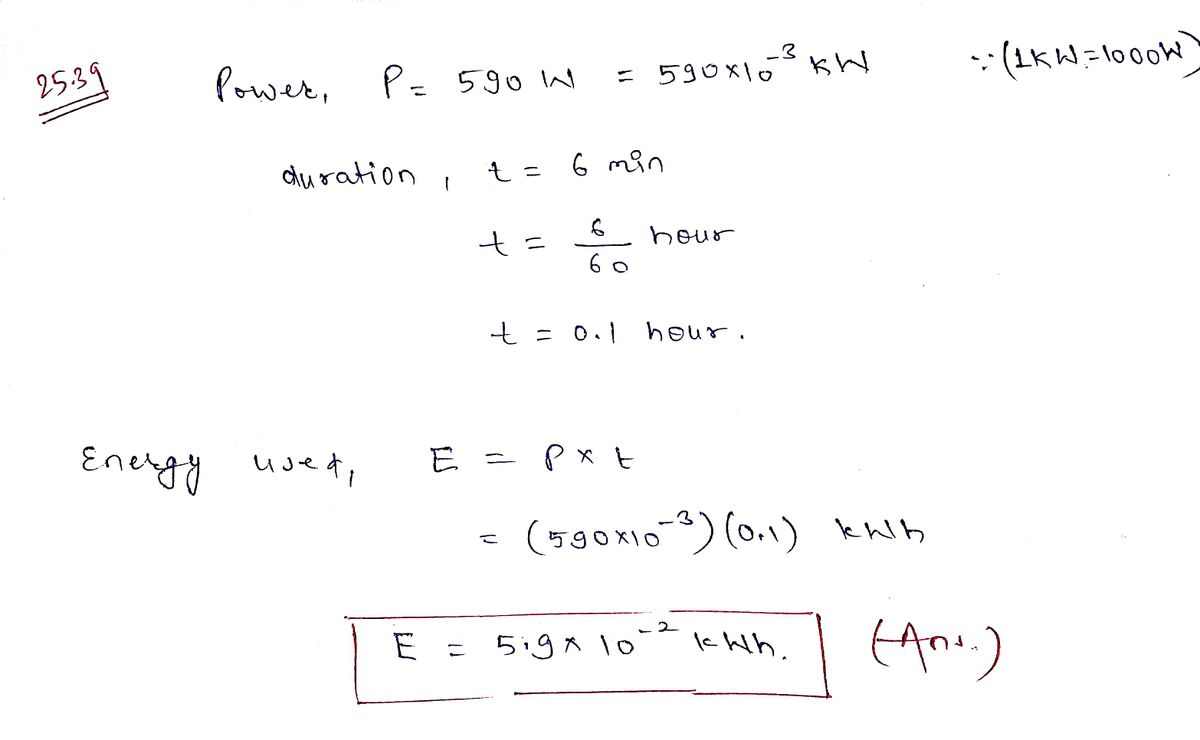 25.39 Power, P = 590 W = 590×10⁻³ KW ∵(1KW=1000W)
duration, t = 6 min
t = 6/60 hour
t = 0.1 hour.
Energy used, E = P×t
= (590×10⁻³)(0.1) kWh
E = 5.9×10⁻² kWh. (Ans.)